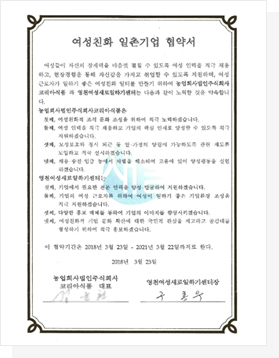 여성친화 일촌기업 협약서
여성들이 자신의 잠재력을 마음껏 펼칠 수 있도록 여성 인력을 적극 채용
하고, 현장경험을 통해 자신감을 가지고 취업할 수 있도록 지원하며, 여성
근로자가 일하기 좋은 여성친화 일터를 만들기 위하여 농업회사법인주식회사
코리아식품 과 영천여성새로일하기센터는 다음과 같이 노력할 것을 약속합니
다.
농업회사법인주식회사코리아식품은
첫째, 여성친화적 조직 문화 조성을 위하여 적극 노력하겠습니다.
둘째, 여성 인력을 적극 채용하고 기업의 핵심 인재로 양성할 수 있도록 적극
지원하겠습니다.
셋째, 모성보호와 탄력 퇴근 등 일·가정의 양립이 가능하도록 관련 제도를
도입하고 적극 실시하겠습니다.
넷째, 채용·승진·임금 등에서 차별을 해소하여 고용에 있어 양성평등을 실현
하겠습니다.
영천여성새로일하기센터는
첫째, 기업에서 필요한 전문 인력을 양성·알선하여 지원하겠습니다.
둘째, 기업의 여성 근로자를 위하여 여성이 일하기 좋은 기업환경 조성을
적극 지원하겠습니다.
셋째, 다양한 홍보 매체를 통하여 기업의 이미지를 향상시키겠습니다.
넷째, 여성친화적 기업 문화 확산에 대한 국민적 관심을 제고하고 공감대를
형성하기 위하여 적극 홍보하겠습니다.
이 협약기간은 2018년 3월 23일 ~ 2021년 3월 22일까지로 한다.
2018년 3월 23일
농업회사법인주식회사
코리아식품 대표
영천여성새로일하기센터장